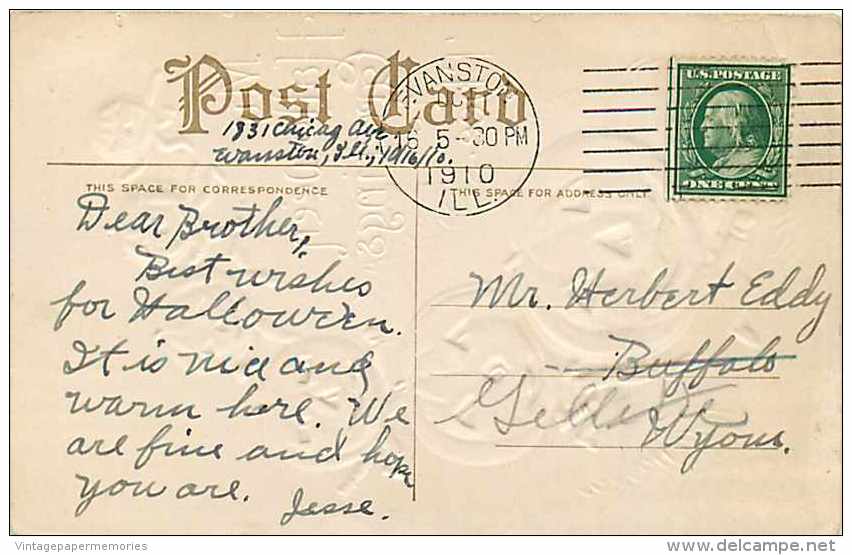 Post Card
1831 Chicag Ave
Evanston, Ill., 10/16/10.
EVANSTON
OCT
16 5-30 PM
1910
ILL.
U.S. POSTAGE
ONE CENT
THIS SPACE FOR CORRESPONDENCE
THIS SPACE FOR ADDRESS ONLY
Dear Brother,
Best wishes
for Halloween.
It is nice and
warm here. We
are fine and hope
you are.
Jesse.
Mr. Herbert Eddy
Buffalo
Wyom.
Vintagepapermemories
delcampe.net